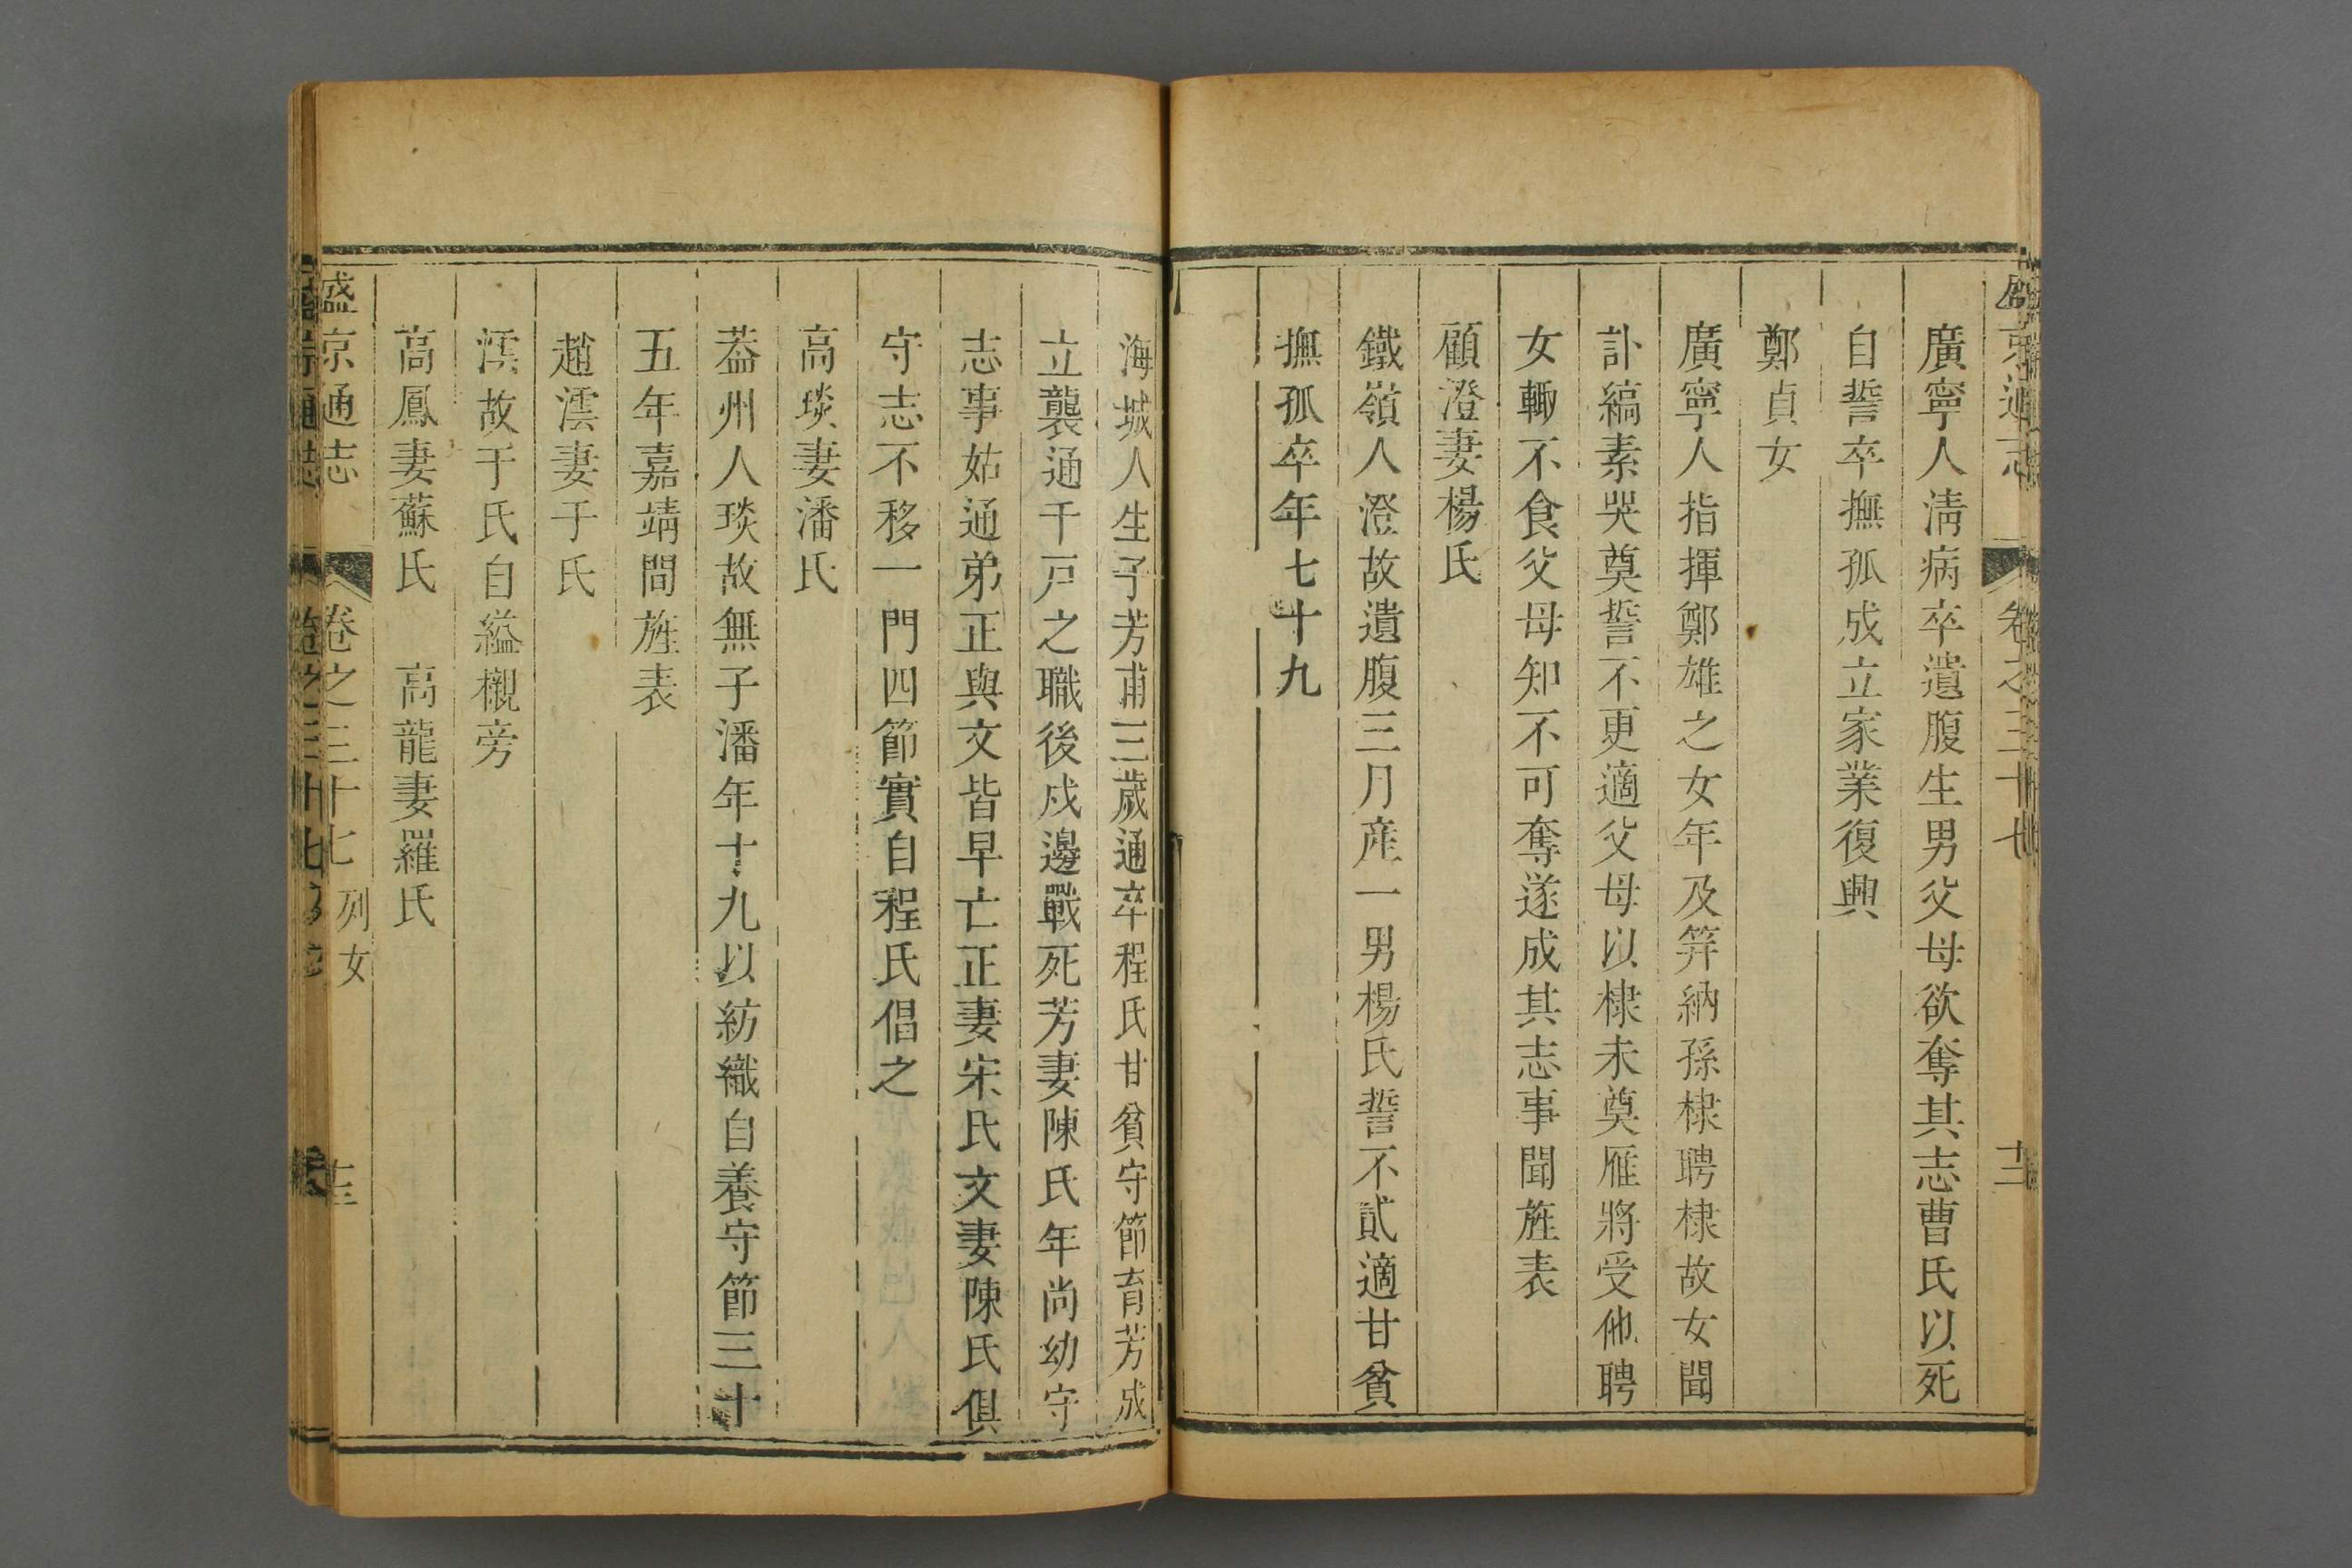 盛京通志 卷之三十七 十二
廣寧人淸病卒遺腹生男父母欲奪其志曹氏以死
自誓卒撫孤成立家業復興
鄭貞女
廣寧人指揮鄭雄之女年及笄納孫棣聘棣故女聞
訃縞素哭奠誓不更適父母以棣未奠雁將受他聘
女輙不食父母知不可奪遂成其志事聞旌表
顧澄妻楊氏
鐵嶺人澄故遺腹三月産一男楊氏誓不貳適甘貧
撫孤卒年七十九
海城人生子芳甫三歲通卒程氏甘貧守節育芳成
立襲通千戸之職後戍邊戰死芳妻陳氏年尚幼守
志事姑通弟正與文皆早亡正妻宋氏文妻陳氏俱
守志不移一門四節實自程氏倡之
高琰妻潘氏
葢州人琰故無子潘年十九以紡織自養守節三十
五年嘉靖間旌表
趙澐妻于氏
澐故于氏自縊櫬旁
高鳳妻蘇氏 高龍妻羅氏
盛京通志 卷之三十七 列女 十三